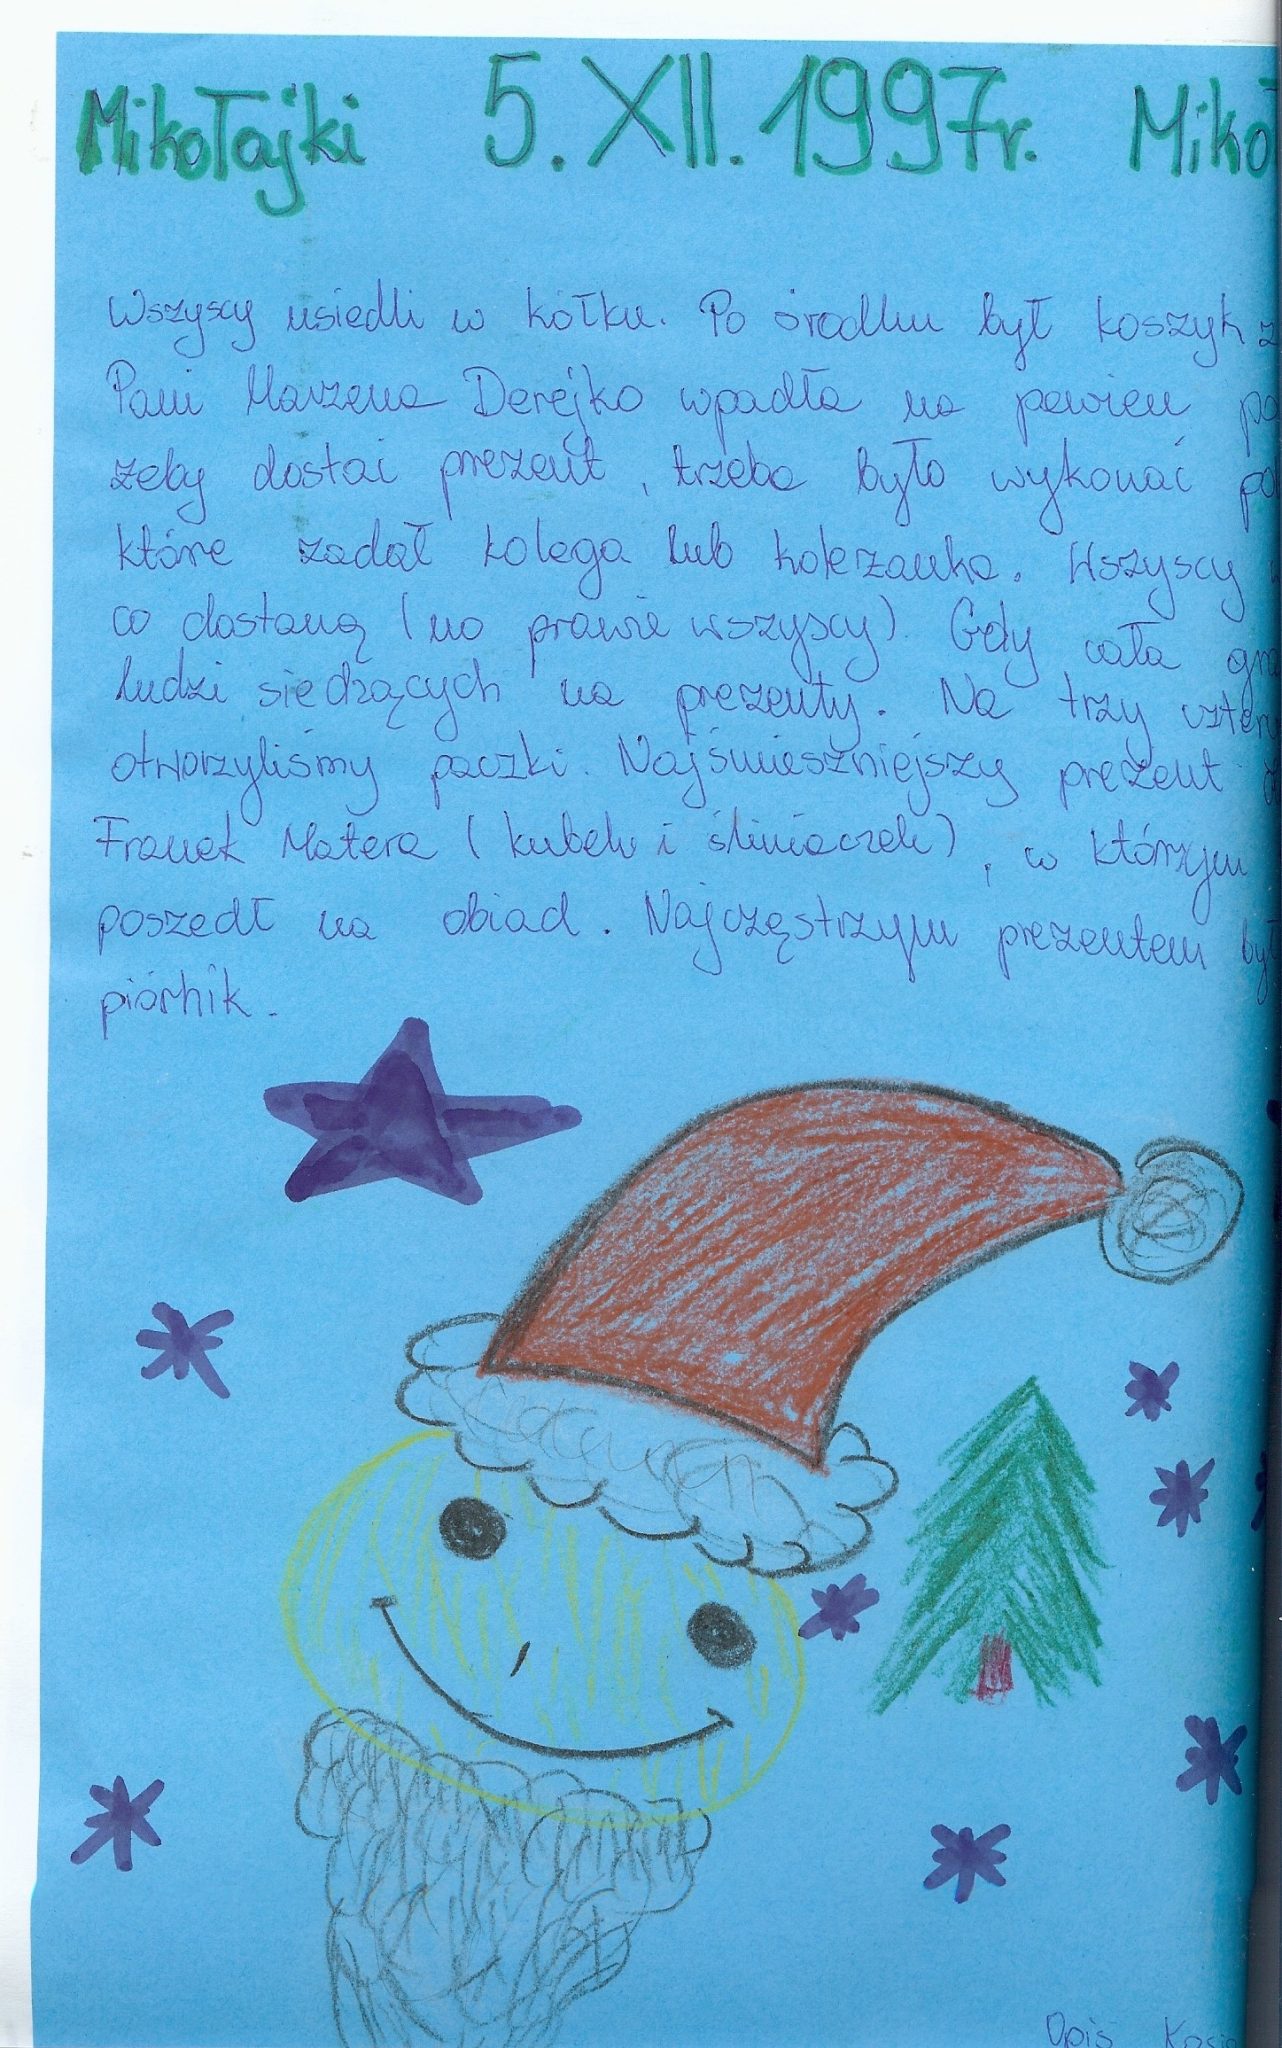 Mikołajki 5.XII.1997r.
Wszyscy usiedli w kółku. Po środku był koszyk z
Pani Marzena Derejko wpadła na pewien
żeby dostać prezent, trzeba było wykonać
które zadał kolega lub koleżanka. Wszyscy
co dostaną (no prawie wszyscy). Gdy cała
ludzi siedzących na prezenty. Na trzy
otworzyliśmy paczki. Najśmieszniejszy prezent
Franek Matera (kubek i śliniaczek), w którym
poszedł na obiad. Najczęstrzym prezentem
piórnik.
Opis